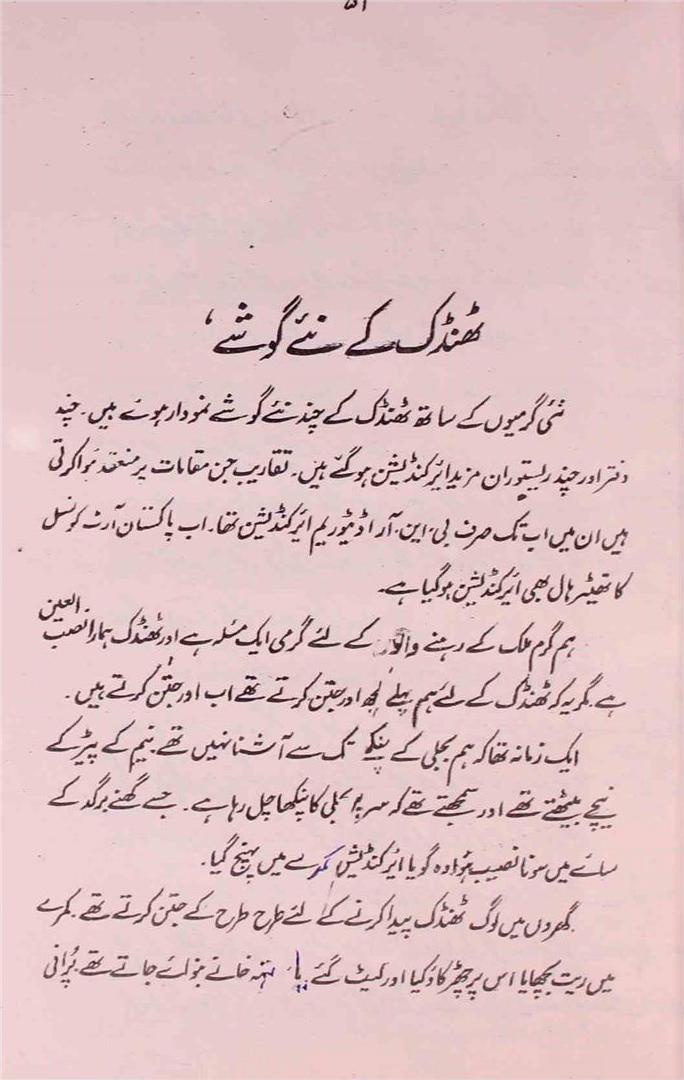 ۵۱
ٹھنڈک کے نئے گوشے
نئی گرمیوں کے ساتھ ٹھنڈک کے چند نئے گوشے نمودار ہوئے ہیں۔ چند
دفتر اور چند ریستوران مزید ایرکنڈیشن ہو گئے ہیں۔ تقاریب جن مقامات پر منعقد ہوا کرتی
ہیں ان میں اب تک صرف بی۔این۔آر اڈیٹوریم ایرکنڈیشن تھا۔ اب پاکستان آرٹ کونسل
کا تھیٹر ہال بھی ایرکنڈیشن ہو گیا ہے۔
ہم گرم ملک کے رہنے والوں کے لئے گرمی ایک مسئلہ ہے اور ٹھنڈک ہمارا نصب العین
ہے۔ مگر یہ کہ ٹھنڈک کے لئے ہم پہلے کچھ اور جتن کرتے تھے اب اور جتن کرتے ہیں۔
ایک زمانہ تھا کہ ہم بجلی کے پنکھے تک سے آشنا نہیں تھے۔ نیم کے پیڑ کے
نیچے بیٹھتے تھے اور سمجھتے تھے کہ سر پر بجلی کا پنکھا چل رہا ہے۔ جسے گھنے برگد کے
سائے میں سونا نصیب ہوا وہ گویا ایرکنڈیشن کمرے میں پہنچ گیا۔
گھروں میں لوگ ٹھنڈک پیدا کرنے کے لئے طرح طرح کے جتن کرتے تھے۔ کمرے
میں ریت بچھایا اس پر چھڑکاؤ کیا اور لیٹ گئے۔ یا تہہ خانے بنوائے جاتے تھے۔ پرانی